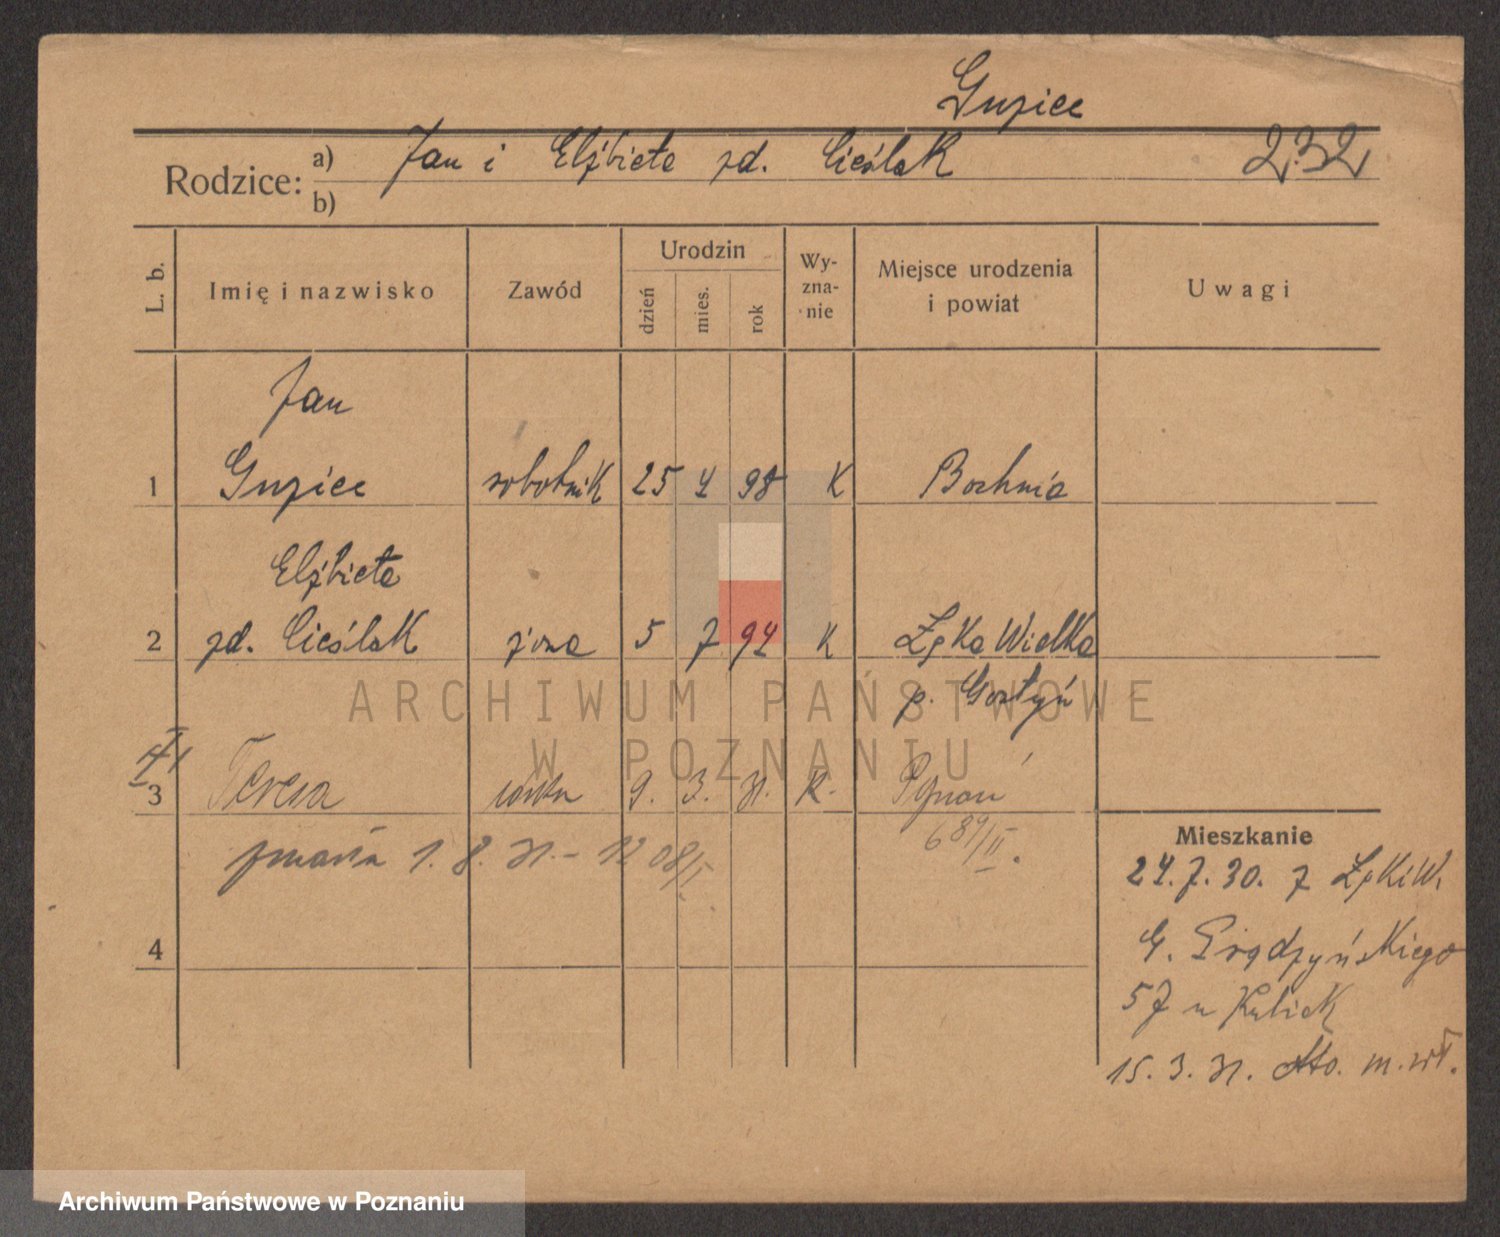 Guziec
Rodzice: a) Jan i Elżbieta zd. Cieślak 232
b)
L. b. Imię i nazwisko Zawód Urodzin dzień mies. rok Wy-zna-nie Miejsce urodzenia i powiat Uwagi
Jan
1 Guziec robotnik 25 4 98 K Bochnia
Elżbieta
2 zd. Cieślak żona 5 7 94 K Łęka Wielka
p. Gostyń
3 Teresa córka 9. 3. 31. K. Poznań
689/II.
zmarła 1. 8. 31. – 1208/I
4
Mieszkanie
24. 7. 30. z Łęki W.
G. Prądzyńskiego
57 u Kubiak
15. 3. 31. dto. m. wł.
ARCHIWUM PAŃSTWOWE
W POZNANIU
Archiwum Państwowe w Poznaniu